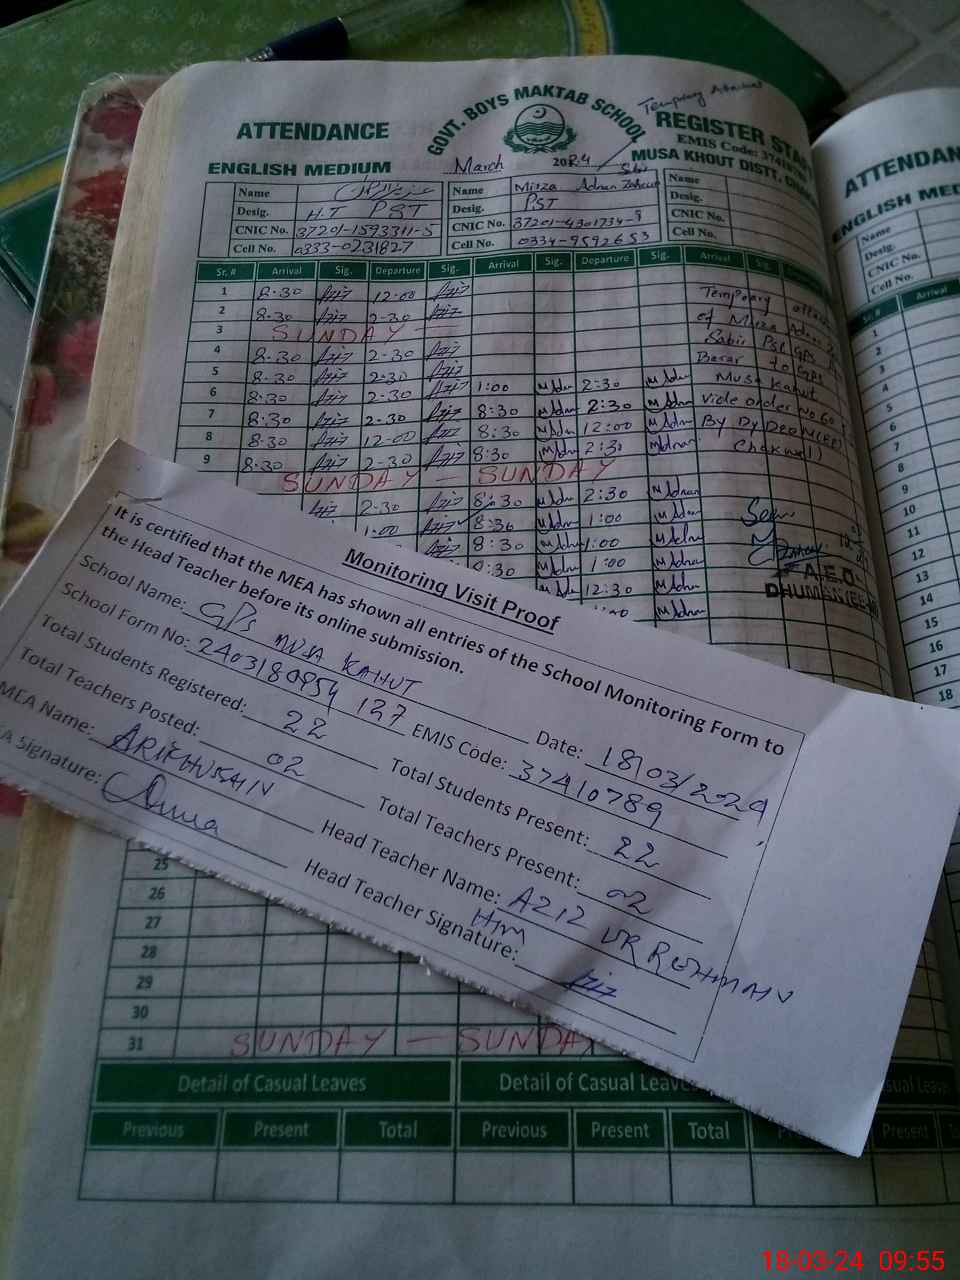 Tempory Attachment
ATTENDANCE GOVT. BOYS MAKTAB SCHOOL REGISTER
EMIS Code:
ENGLISH MEDIUM March 2024 MUSA KHOUT DISTT.
Name عزیزالرحمان Name Mirza Adnan Zaheer Sabir Name
Desig. H.T PST Desig. PST Desig.
CNIC No. 37201-1593911-5 CNIC No. 37201-4301734-9 CNIC No.
Cell No. 0333-0231827 Cell No. 0334-9592653 Cell No.
Sr. # Arrival Sig. Departure Sig. Arrival Sig. Departure Sig. Arrival Sig.
1 8.30 Aziz 12-00 Aziz
2 8.30 Aziz 2-30 Aziz
3 SUNDAY
4 8.30 Aziz 2-30 Aziz
5 8.30 Aziz 2.30 Aziz
6 8.30 Aziz 2-30 Aziz 1:00 M Adnan 2:30 M Adnan
7 8.30 Aziz 2.30 Aziz 8:30 M Adnan 2:30 M Adnan
8 8.30 Aziz 12-00 Aziz 8:30 M Adnan 12:00 M Adnan
9 8.30 Aziz 2-30 Aziz 8:30 M Adnan 2:30 M Adnan
SUNDAY - SUNDAY
Aziz 2-30 Aziz 8:30 M Adnan 2:30 M Adnan
1.00 Aziz 8:30 M Adnan 1:00 M Adnan
Aziz 8:30 M Adnan 1:00 M Adnan
8:30 M Adnan 1:00 M Adnan
M Adnan 12:30 M Adnan
M Adnan
Tempory
of Mirza Adnan
Sabir Pst GPS
to GPS
Musa Kahut
vide order No 60
By Dy DEO
Chakwal
Seen
A.E.O
Monitoring Visit Proof
It is certified that the MEA has shown all entries of the School Monitoring Form to
the Head Teacher before its online submission.
School Name: GPS MUSA KAHUT Date: 18/03/2024
School Form No: 2403180954 127 EMIS Code: 37410789
Total Students Registered: 22 Total Students Present: 22
Total Teachers Posted: 02 Total Teachers Present: 02
MEA Name: Head Teacher Name: AZIZ UR REHMAN
A Signature: Head Teacher Signature: Aziz
25
26
27
28
29
30
31 SUNDAY - SUNDAY
Detail of Casual Leaves Detail of Casual Leaves
Previous Present Total Previous Present Total Present
ATTENDAN
ENGLISH MED
Name
Desig.
CNIC No.
Cell No.
Sr. # Arrival
1
2
3
4
5
6
7
8
9
10
11
12
13
14
15
16
17
18
18-03-24 09:55